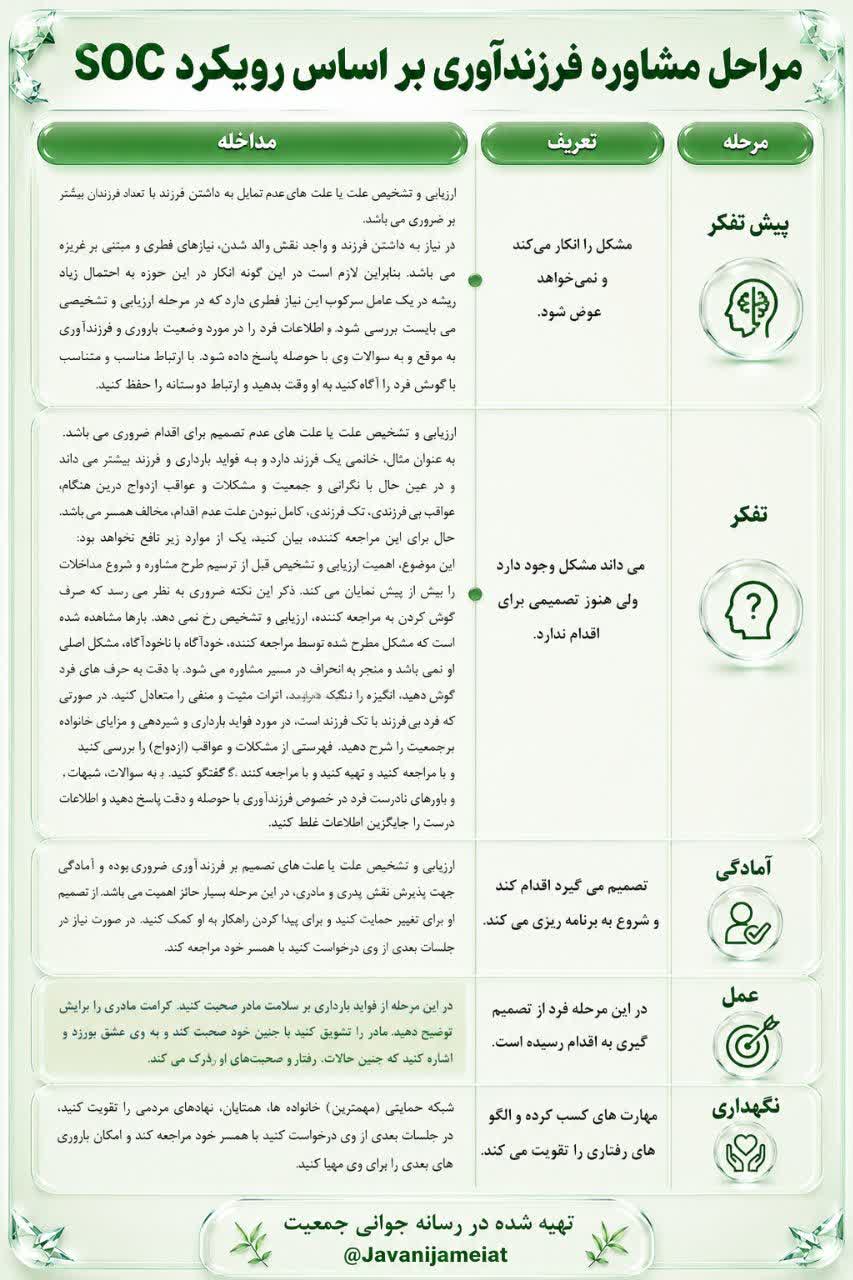 مراحل مشاوره فرزندآوری بر اساس رویکرد SOC
مرحله
تعریف
مداخله
پیش تفکر
مشکل را انکار می‌کند
و نمی‌خواهد
عوض شود.
ارزیابی و تشخیص علت یا علت های عدم تمایل به داشتن فرزند با تعداد فرزندان بیشتر
بر ضروری می باشد.
در نیاز به داشتن فرزند و واجد نقش والد شدن، نیازهای فطری و مبتنی بر غریزه
می باشد. بنابراین لازم است در این گونه انکار در این حوزه به احتمال زیاد
ریشه در یک عامل سرکوب این نیاز فطری دارد که در مرحله ارزیابی و تشخیصی
می بایست بررسی شود. و اطلاعات فرد را در مورد وضعیت باروری و فرزندآوری
به موقع و به سوالات وی با حوصله پاسخ داده شود. با ارتباط مناسب و متناسب
با گوش فرد را آگاه کنید به او وقت بدهید و ارتباط دوستانه را حفظ کنید.
تفکر
می داند مشکل وجود دارد
ولی هنوز تصمیمی برای
اقدام ندارد.
ارزیابی و تشخیص علت یا علت های عدم تصمیم برای اقدام ضروری می باشد.
به عنوان مثال، خانمی یک فرزند دارد و به فواید بارداری و فرزند بیشتر می داند
و در عین حال با نگرانی و جمعیت و مشکلات و عواقب ازدواج درین هنگام،
عواقب بی فرزندی، تک فرزندی، کامل نبودن علت عدم اقدام، مخالف همسر می باشد.
حال برای این مراجعه کننده، بیان کنید، یک از موارد زیر نافع نخواهد بود:
این موضوع، اهمیت ارزیابی و تشخیص قبل از ترسیم طرح مشاوره و شروع مداخلات
را بیش از پیش نمایان می کند. ذکر این نکته ضروری به نظر می رسد که صرف
گوش کردن به مراجعه کننده، ارزیابی و تشخیص رخ نمی دهد. بارها مشاهده شده
است که مشکل مطرح شده توسط مراجعه کننده، خودآگاه با ناخودآگاه، مشکل اصلی
او نمی باشد و منجر به انحراف در مسیر مشاوره می شود. با دقت به حرف های فرد
گوش دهید، انگیزه را اثرات مثبت و منفی را متعادل کنید. در صورتی
که فرد بی فرزند با تک فرزند است، در مورد فواید بارداری و شیردهی و مزایای خانواده
برجمعیت را شرح دهید. فهرستی از مشکلات و عواقب (ازدواج) را بررسی کنید
و با مراجعه کنید و تهیه کنید و با مراجعه کنند گفتگو کنید. به سوالات، شبهات،
و باورهای نادرست فرد در خصوص فرزندآوری با حوصله و دقت پاسخ دهید و اطلاعات
درست را جایگزین اطلاعات غلط کنید.
آمادگی
تصمیم می گیرد اقدام کند
و شروع به برنامه ریزی می کند.
ارزیابی و تشخیص علت یا علت های تصمیم بر فرزند آوری ضروری بوده و آمادگی
جهت پذیرش نقش پدری و مادری، در این مرحله بسیار حائز اهمیت می باشد. از تصمیم
او برای تغییر حمایت کنید و برای پیدا کردن راهکار به او کمک کنید. در صورت نیاز در
جلسات بعدی از وی درخواست کنید با همسر خود مراجعه کند.
عمل
در این مرحله فرد از تصمیم
گیری به اقدام رسیده است.
در این مرحله از فواید بارداری بر سلامت مادر صحبت کنید. کرامت مادری را برایش
توضیح دهید. مادر را تشویق کنید با جنین خود صحبت کند و به وی عشق بورزد و
اشاره کنید که جنین حالات، رفتار و صحبت‌های او می کند.
نگهداری
مهارت های کسب کرده و الگو
های رفتاری را تقویت می کند.
شبکه حمایتی (مهمترین) خانواده ها، همتایان، نهادهای مردمی را تقویت کنید،
در جلسات بعدی از وی درخواست کنید با همسر خود مراجعه کند و امکان باروری
های بعدی را برای وی مهیا کنید.
تهیه شده در رسانه جوانی جمعیت
@Javanijameiat